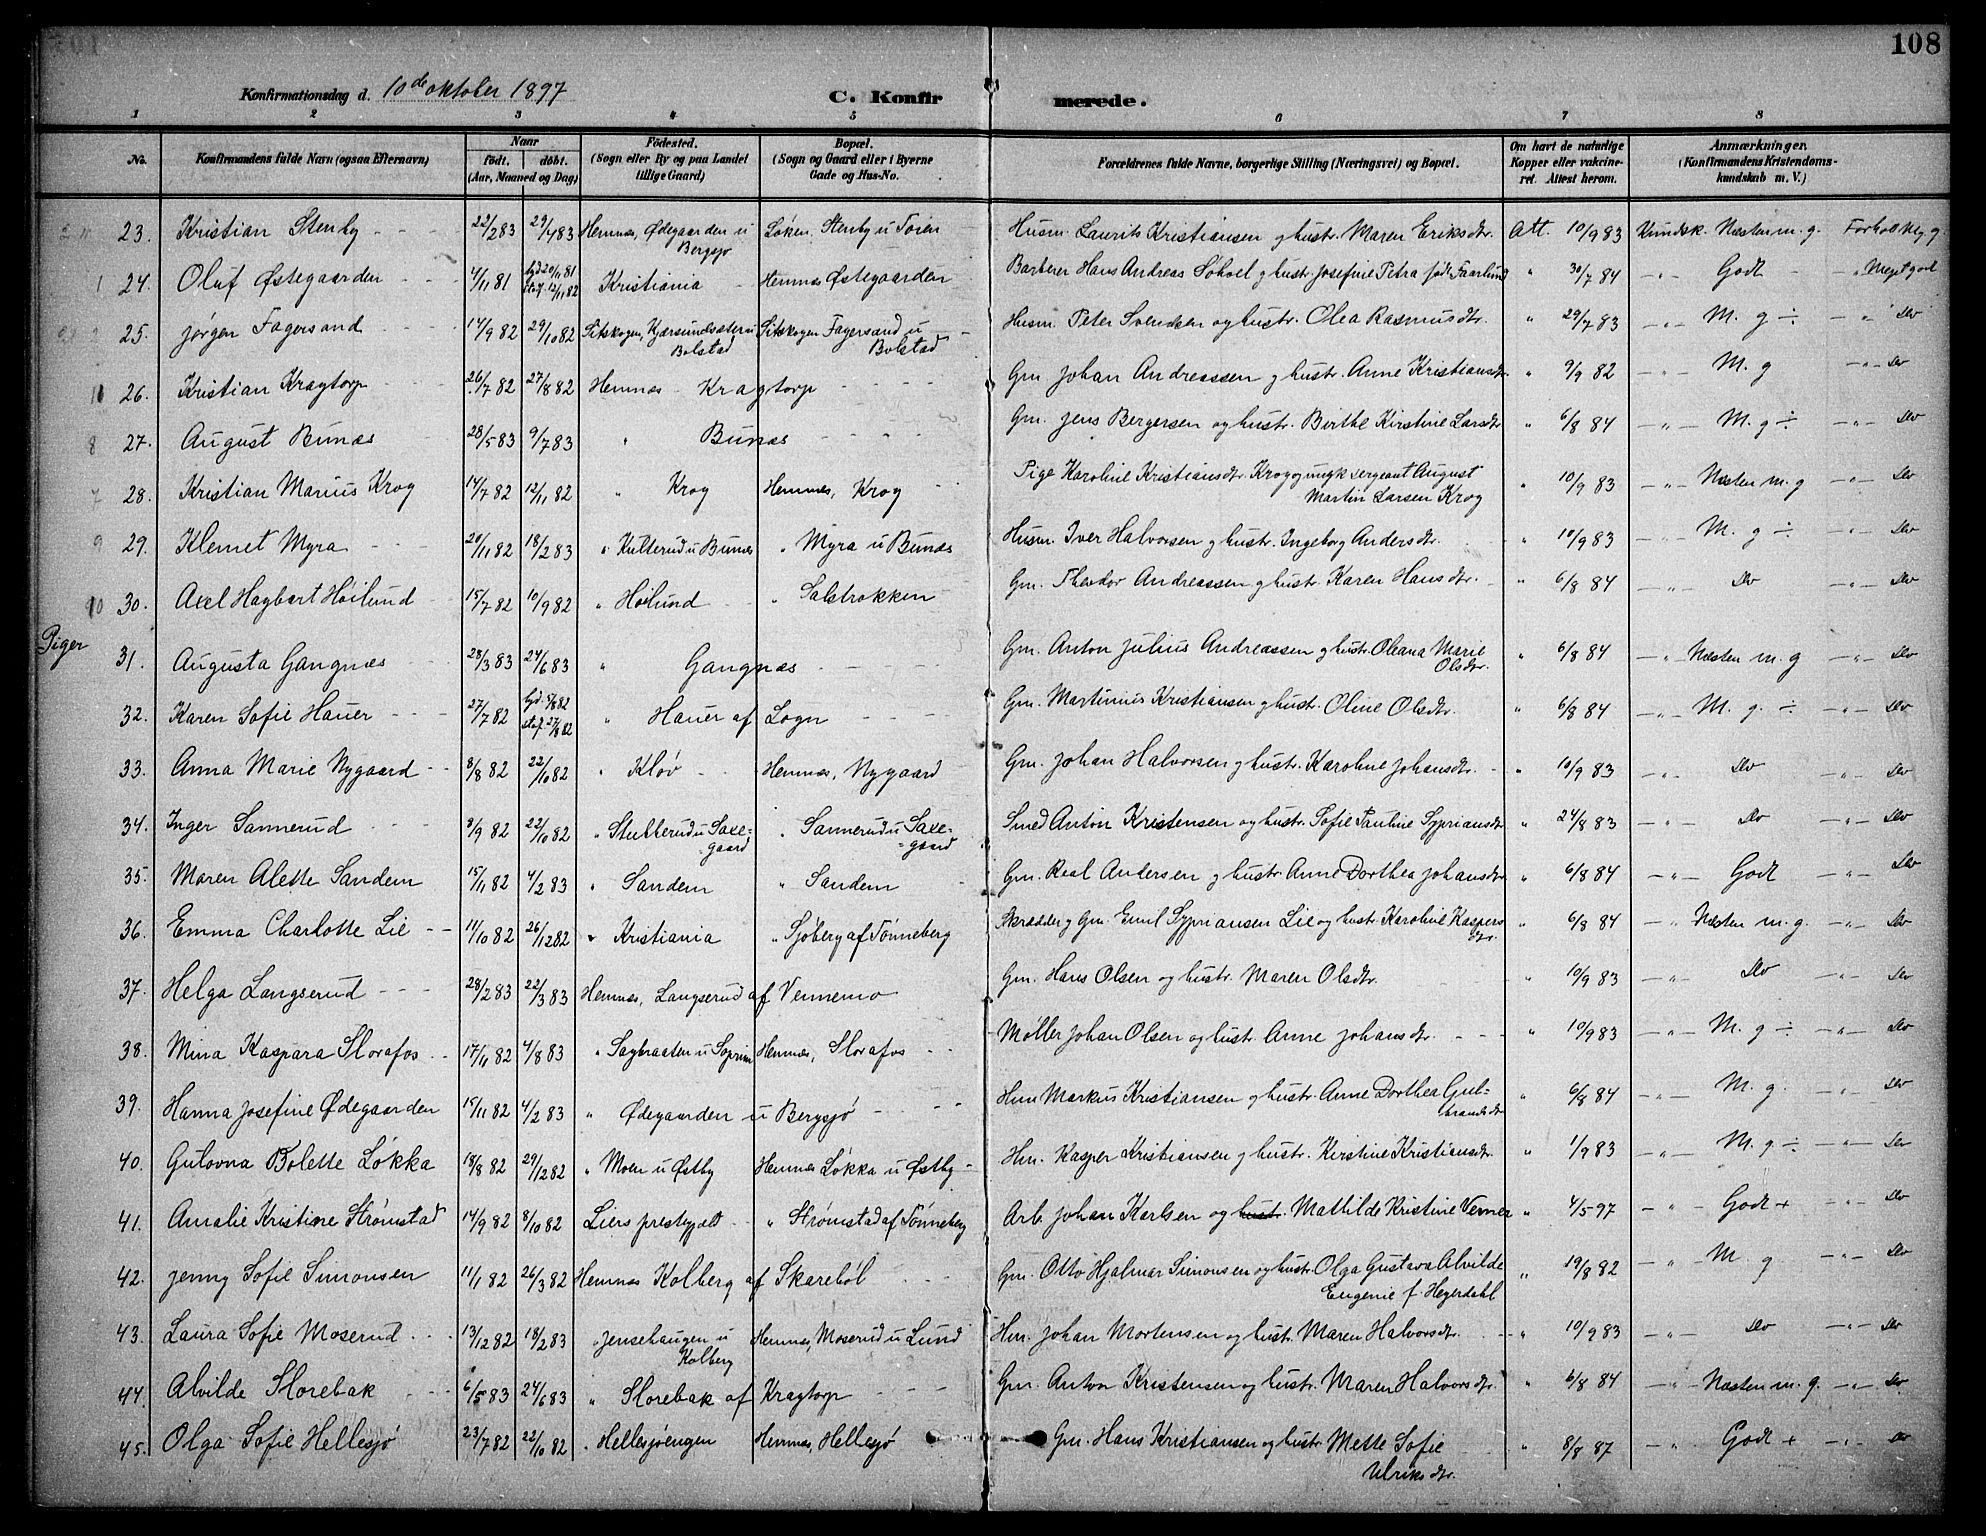 108
Konfirmationsdag d. 10de oktober 1897 C. Konfirmerede.
1 2 3 4 5 6 7 8
No. Konfirmandens fulde Navn (ogsaa Efternavn) Naar født. døbt. (Aar, Maaned og Dag) Fødested. (Sogn eller By og paa Landet tillige Gaard) Bopæl. (Sogn og Gaard eller i Byerne Gade og Hus-No. Forældrenes fulde Navne, borgerlige Stilling (Næringsvei) og Bopæl. Om havt de naturlige Kopper eller vakcineret. Attest herom. Anmærkninger. (Konfirmandens Kristendomskundskab m. V.)
23. Kristian Stenby 22/2 83 29/4 83 Hemnæs, Ødegaarden u Bergsjø Løken, Stenby u Toien Husm. Laurits Kristiansen og hustr. Maren Eriksdtr. Att. 10/9 83 Kundsk. Næsten m. g. Forhold Meg. g.
1 24. Oluf Østegaarden 4/11 81 hjd 20/11 81 stadf. 12/11 82 Kristiania Hemnæs Østegaarden Barberer Hans Andreas Solvol og hustr. Josefine Petra født Faarlund " 30/7 84 -"- Godt " Meget godt
25. Jørgen Fagersand 14/9 82 29/10 82 Sitskogen, Kjærsundsæter u Bolstad Sitskogen Fagersand u Bolstad Husm. Peter Svendsen og hustr. Olea Rasmusdtr. " 29/7 83 -"- M. g ÷ -"- Do
11 26. Kristian Kragtorp 26/7 82 27/8 82 Hemnæs - Kragtorp Gm Johan Andreassen og hustr. Anne Kristiansdtr. " 9/9 82 -"- M. g -"- Do
8 27. August Bunæs 28/5 83 9/7 83 " Bunæs Gm. Jens Bergersen og hustr. Birthe Kirstine Larsdtr " 6/8 84 -"- M. g ÷ -"- Do
7 28. Kristian Marius Krog 14/7 82 12/11 82 " Krog Hemnæs, Krog Pige Karoline Kristiansdtr. Krog og ungk. sergeant August Martin Larsen Krog " 10/9 83 -"- Næsten m. g -"- Do
9 29. Klemet Myra 20/11 82 18/2 83 " Kulterud u Bunæs " Myra u Bunæs Husm. Iver Halvorsen og hustr. Ingeborg Andersdtr. " 10/9 83 -"- M. g ÷ -"- Do
10 30. Axel Hagbart Høilund 15/7 82 10/9 82 " Høilund " Salstrokken Gm. Theodor Andreassen og hustr. Karen Hansdtr. " 6/8 84 -"- Do -"- Do
Piger
31. Augusta Gangnæs 28/3 83 24/6 83 " Gangnæs Gm. Anton Julius Andreassen og hustr. Oleana Marie Olsdtr. " 6/8 84 -"- Næsten m. g -"- Do
32. Karen Sofie Hauer 27/7 82 hjd. 5/8 82 stadf. 27/8 82 " Hauer af Sogn Gm. Martinius Kristiansen og hustr. Oline Olsdtr. " 6/8 84 -"- M. g. ÷ -"- Do
33. Anna Marie Nygaard 8/8 82 22/10 82 " Kløv Hemnæs, Nygaard Gm. Johan Halvorsen og hustr. Karoline Johansdtr. " 10/9 83 -"- Do -"- Do
34. Inger Sannerud 8/9 82 22/10 82 " Stutterud u Saxegaard " Sannerud u Saxegaard Smed Anton Kristensen og hustr. Sofie Pauline Sypriansdtr " 24/8 83 -"- Do -"- Do
35. Maren Alette Sandem 15/11 82 4/2 83 " Sandem " Sandem Gm. Real Andersen og hustr. Anne Dorthea Johansdtr " 6/8 84 -"- Godt -"- Do
36. Emma Charlotte Lie 11/10 82 26/12 82 " Kristiania " Sjøberg af Tønneberg Skrædder og Gm. Emil Sypriansen Lie og hustr. Karoline Kaspersdtr. " 6/8 84 -"- Næsten m. g. -"- Do
37. Helga Langserud 28/2 83 22/3 83 Hemnæs, Langserud af Vennemo Gm. Hans Olsen og hustr. Maren Olsdtr. " 10/9 83 -"- Do -"- Do
38. Mina Kaspara Storafos 17/11 82 4/8 83 " Sagbraaten u Soprim Hemnæs, Storafos Møller Johan Olsen og hustr. Anne Johansdtr. " 10/9 83 -"- M. g ÷ -"- Do
39. Hanna Josefine Ødegaarden 15/11 82 4/2 83 " Ødegaarden u Bergsjø Hm Markus Kristiansen og hustr. Anne Dorthea Gulbrandsdtr " 6/8 84 -"- M. g. -"- Do
40. Gulovna Bolette Løkka 18/8 82 29/12 82 " Moen u Østby Hemnæs Løkka u Østby Hm. Kasper Kristiansen og hustr. Kirstine Kristiansdtr. " 1/9 83 -"- M. g ÷ -"- Do
41. Amalie Kristine Strømstad 14/9 82 8/10 82 Liers prestegjælt " Strømstad af Tønneberg Arb. Johan Karlsen og hustr. Mathilde Kristine Verner " 4/5 97 -"- Godt + -"- Do
42. Jenny Sofie Simonsen 11/1 82 26/3 82 Hemnæs Kolberg af Skarebøl Gm. Otto Hjalmar Simonsen og hustr. Olga Gustava Alvilde Eugenie f. Heyerdahl " 19/8 82 -"- M. g -"- Do
43. Laura Sofie Moserud 13/12 82 18/2 83 " Jensehaugen u Kolberg Hemnæs, Moserud u Lund Hm. Johan Mortensen og hustr. Maren Halvorsdtr. " 10/9 83 -"- Do -"- Do
44. Alvilde Storebak 6/5 83 24/6 83 " Storebak af Kragtorp Gm. Anton Kristensen og hustr. Maren Halvorsdtr. " 6/8 84 -"- Næsten m. g. -"- Do
45. Olga Sofie Hellesjø 23/7 82 22/10 82 " Hellesjøengen Hemnæs, Hellesjø Gm. Hans Kristiansen og hustr. Mette Sofie Ulriksdtr. " 8/8 87 -"- Godt + -"- Do